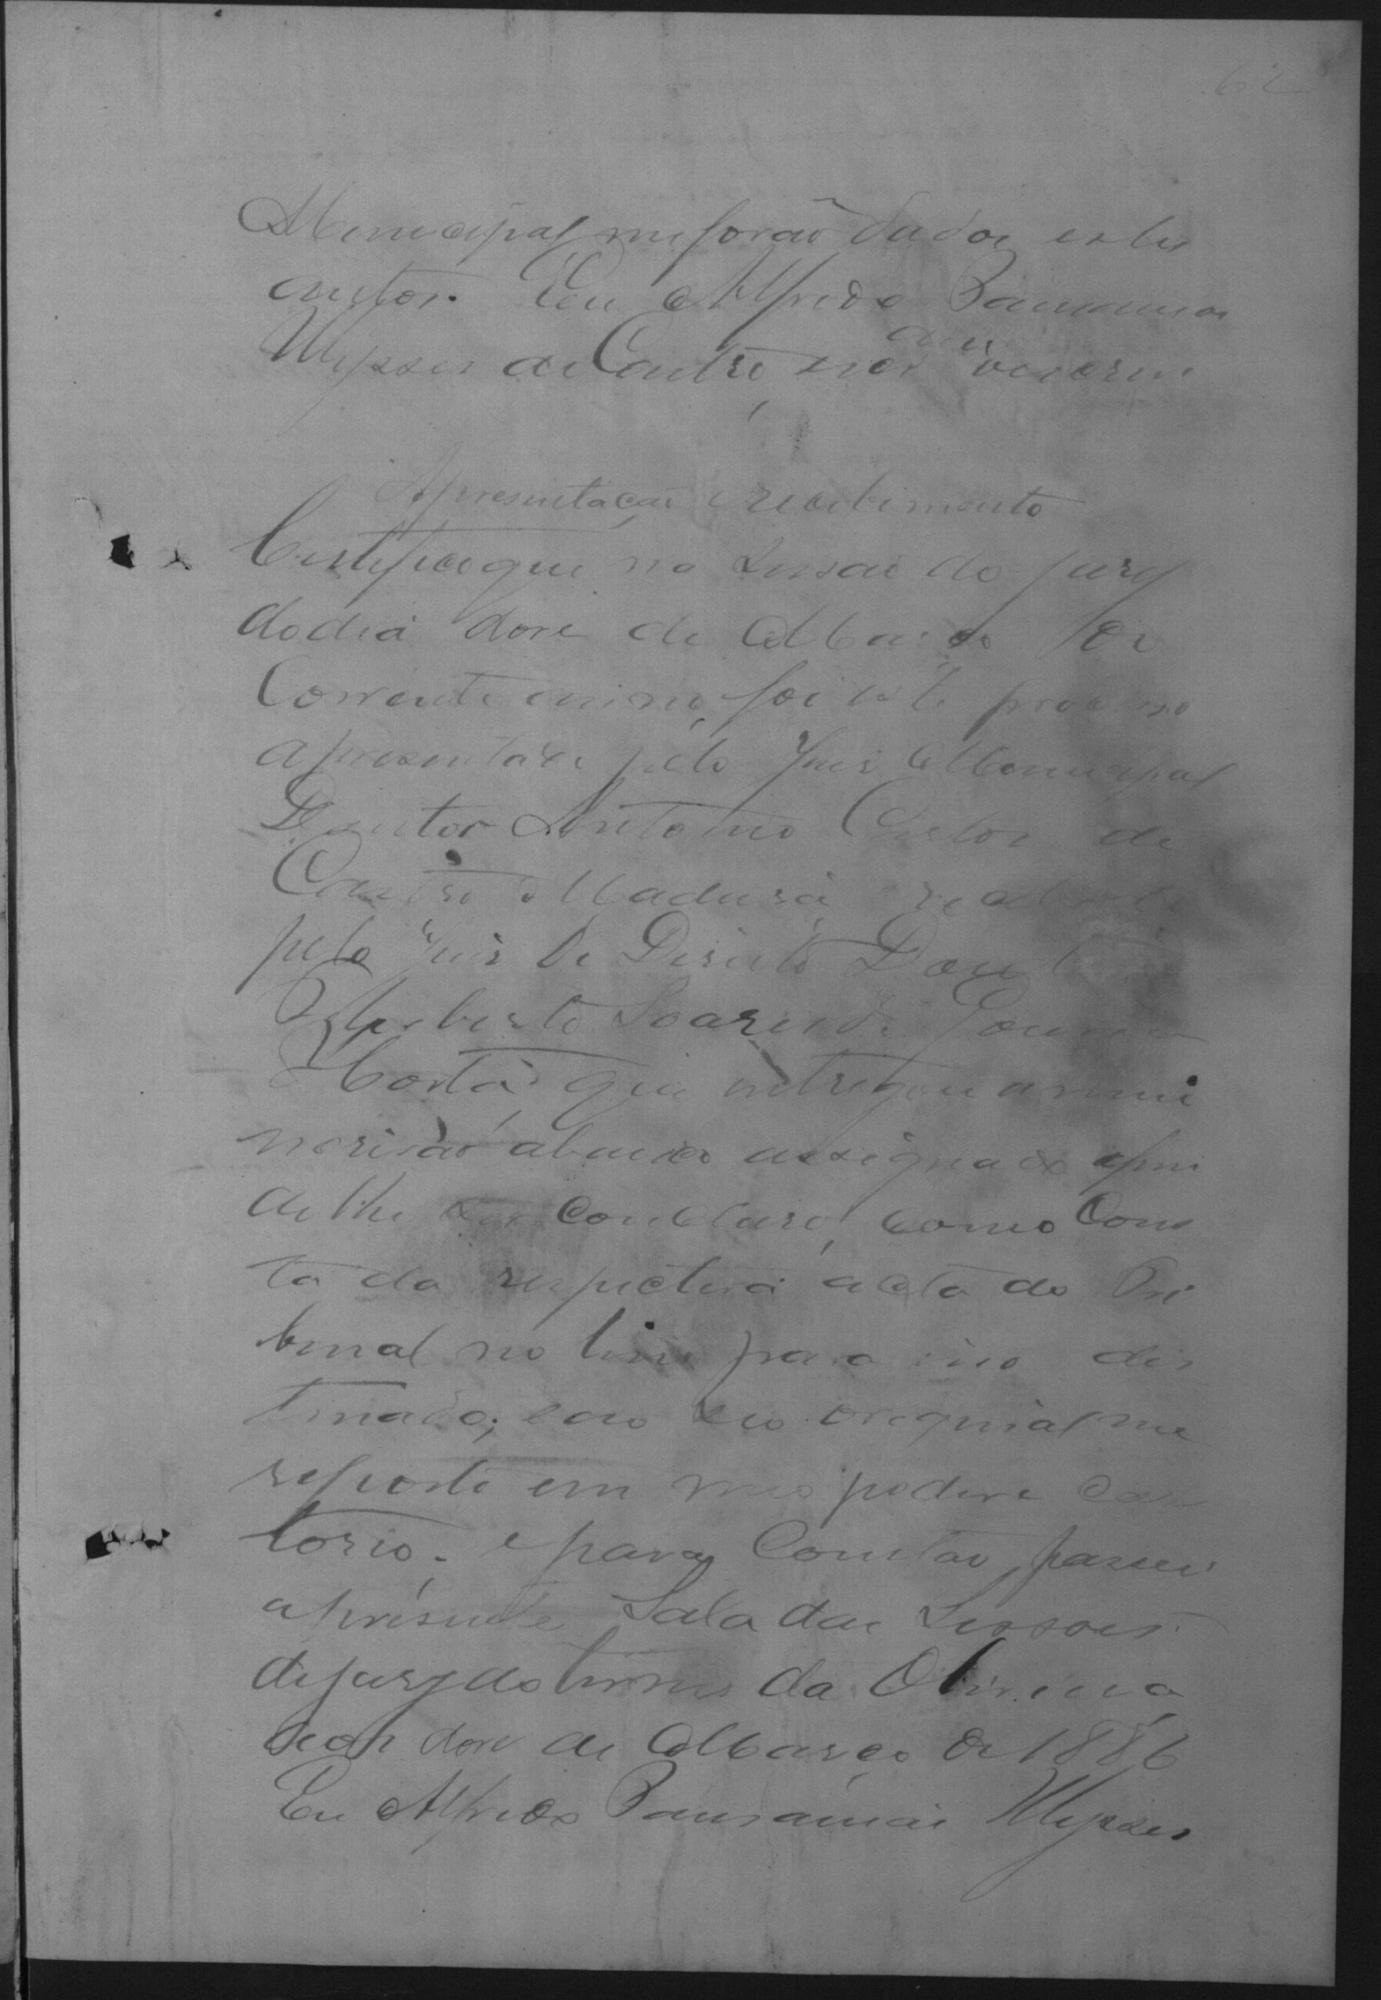 62
Municipal me forão dados estes
autos. Eu Alfredo Pausanias
Ulysses de Castro, escr
Apresentação e recebimento
Certifico que na sessão do jury
do dia dose de Março do
Corrente anno, foi este processo
apresentado pelo Juis Municipal
Doutor Antonio Carlos de
Castro Madeira, recebido
pelo Juis de Direito Dou
Umberto Soares de Gouveia
Horta que entregou a mim
escrivão abaixo assignado afim
de lhe ser concluso, como Cons
ta da respectiva acta do Tri
bunal no livro para isso des
tinado; e ao seo original me
reporto em meo poder e Car
torio. e para Constar passei
a presente. Sala das Sessoes
do jury do termo da Oliveira
aos dose de Março de 1886
Eu Alfredo Pausanias Ulysses